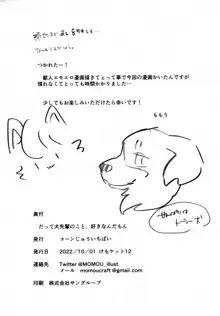 つかれたー！
獣人エモエロ漫画描きてぇって事で今回の漫画かいたんですが
慣れなくてとっても時間かかりました…
少しでもお楽しみいただけたら幸いです！
ももう
奥付
だって犬先輩のこと、好きなんだもん
発行 コーンじゅういちぱい
発行日 2022/10/01 けもケット12
連絡先 Twitter @MOMOU_illust
メール momoucraft@gmail.com
印刷 株式会社サングループ